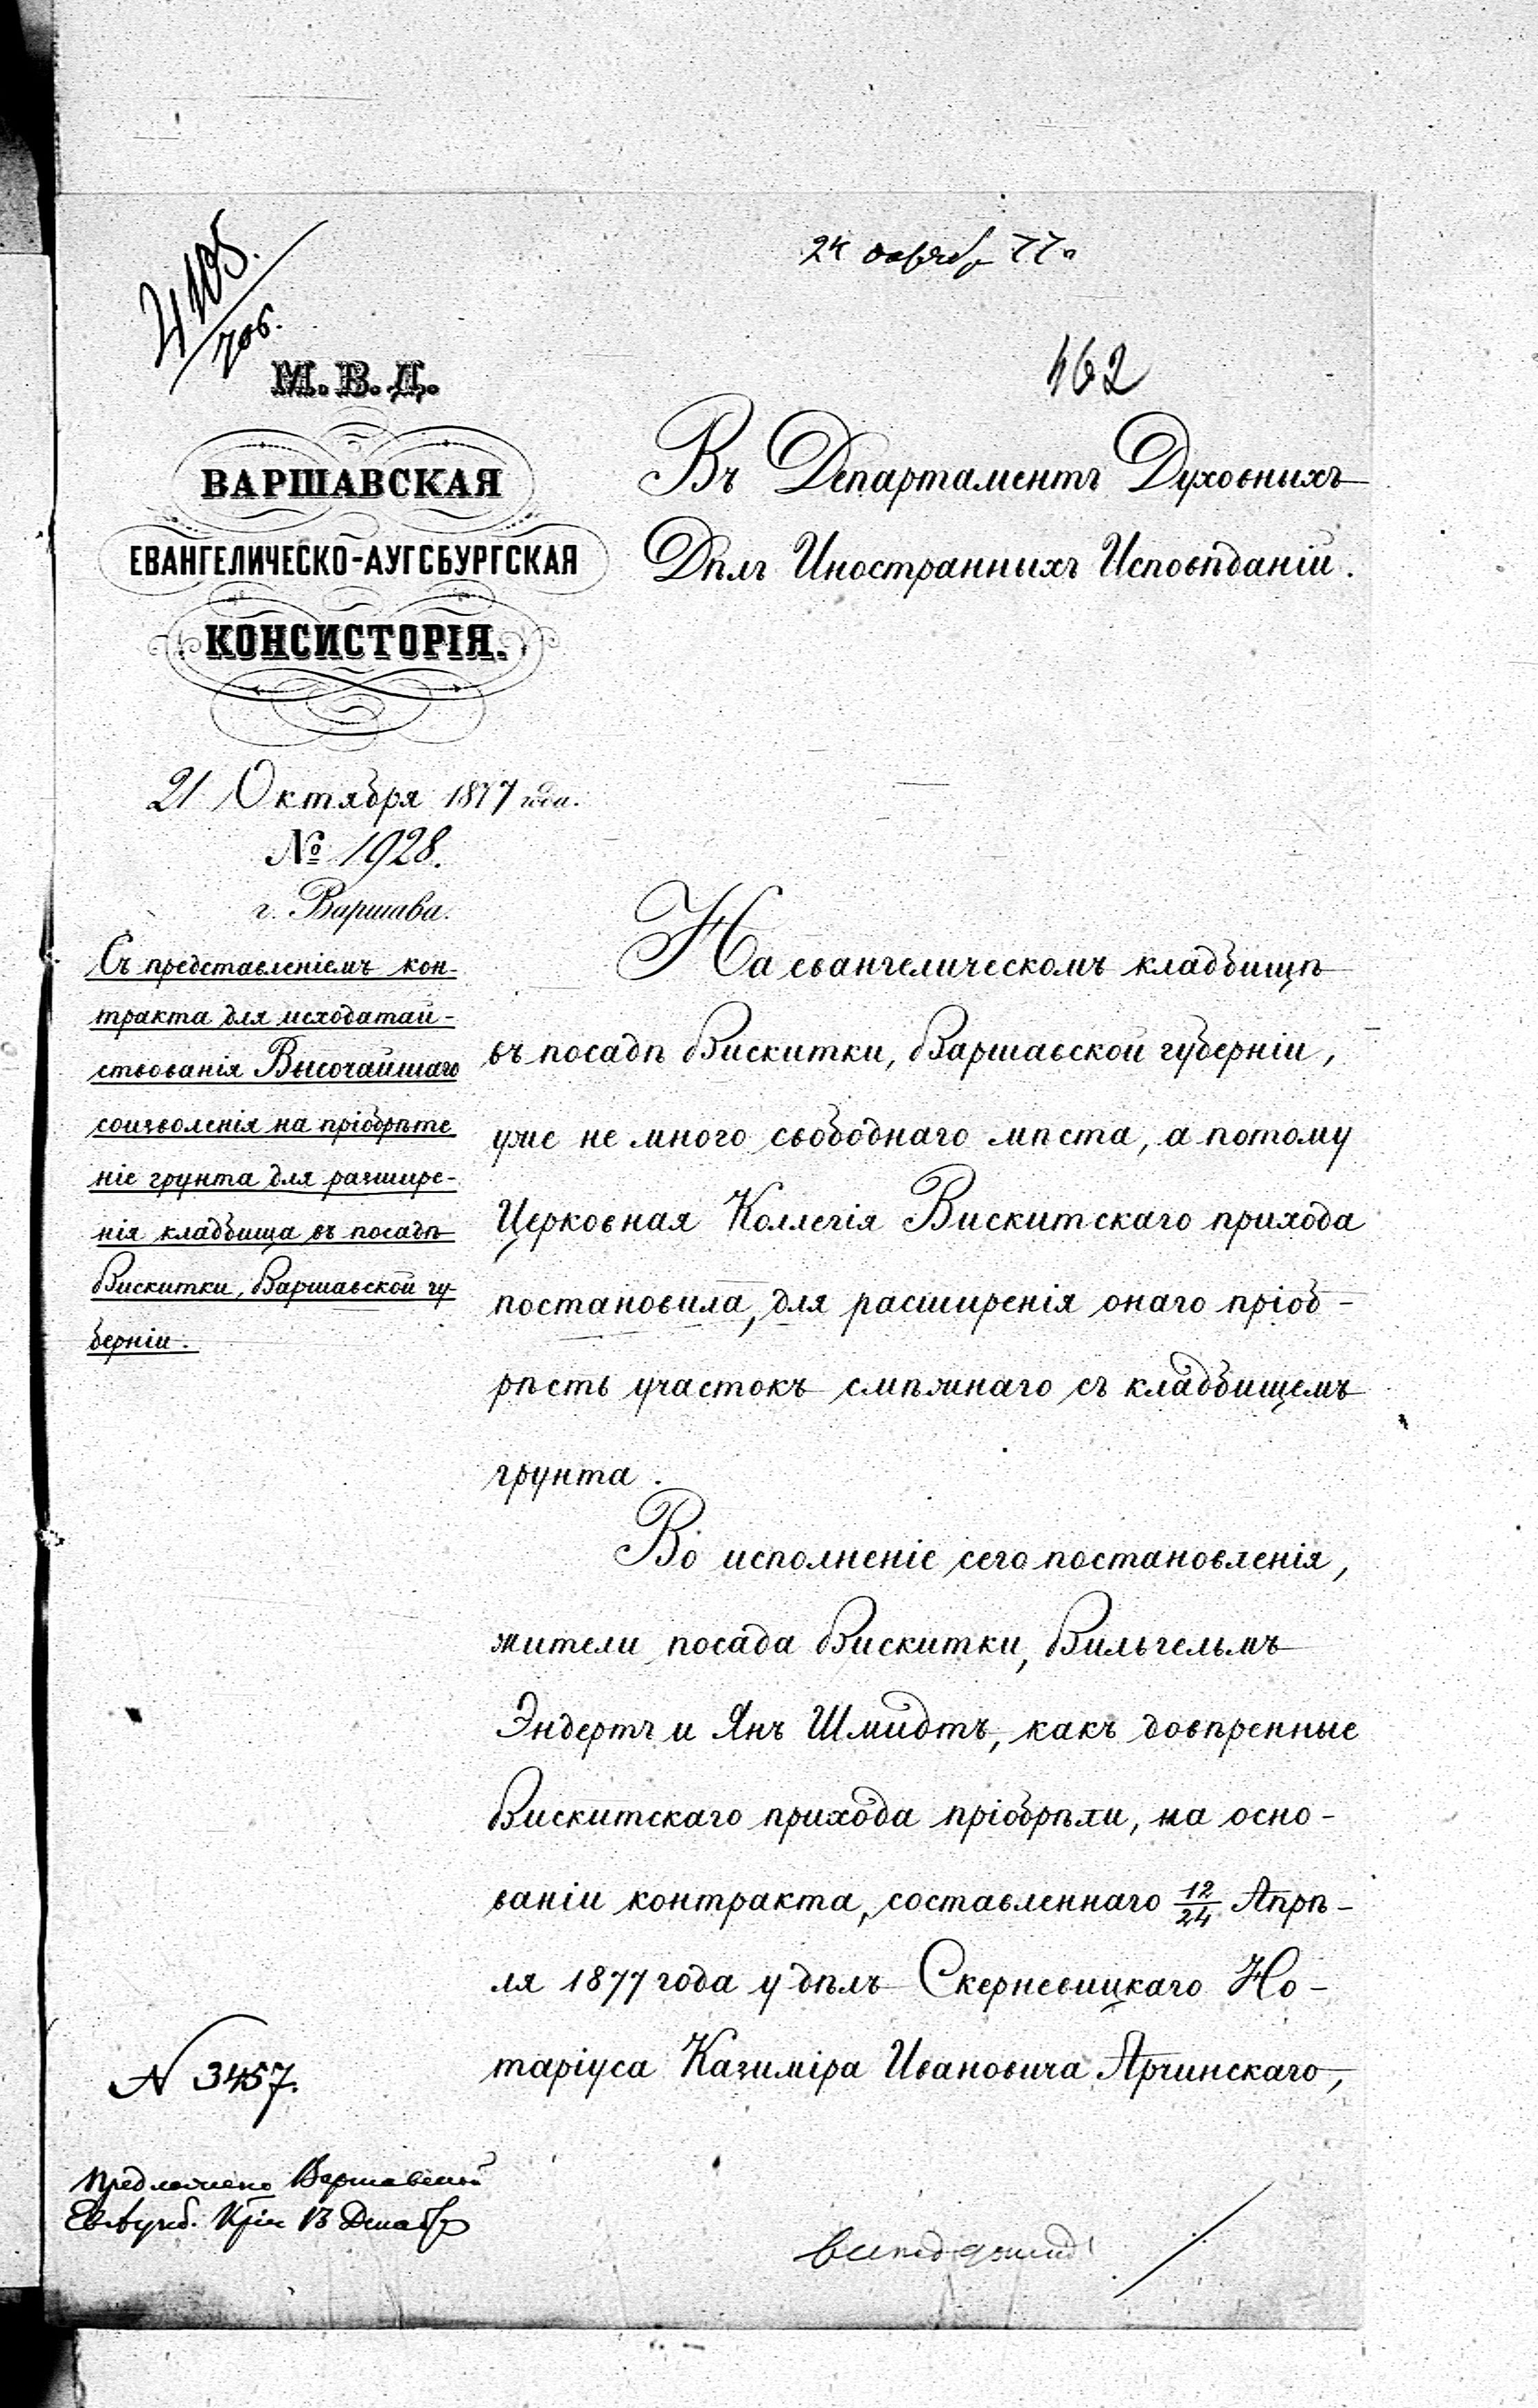 4105.
706.
24 октября 77 г.
462
М. В. Д.
ВАРШАВСКАЯ
ЕВАНГЕЛИЧЕСКО-АУГСБУРГСКАЯ
КОНСИСТОРІЯ.
21 Октября 1877 года.
№ 1928.
г. Варшава.
Съ представленіемъ кон-
тракта для исходатай-
ствованія Высочайшаго
соизволенія на пріобрѣте
ніе грунта для разшире-
нія кладбища въ посадѣ
Вискитки, Варшавской гу-
берніи.
Въ Департаментъ Духовныхъ
Дѣлъ Иностранныхъ Исповѣданій.
На евангелическомъ кладбищѣ
въ посадѣ Вискитки, Варшавской губерніи,
уже не много свободнаго мѣста, а потому
Церковная Коллегія Вискитскаго прихода
постановила, для расширенія онаго пріоб-
рѣсть участокъ смѣжнаго съ кладбищемъ
грунта.
Во исполненіе сего постановленія,
жители посада Вискитки, Вильгельмъ
Эндертъ и Янъ Шмидтъ, какъ довѣренные
Вискитскаго прихода пріобрѣли, на осно-
ваніи контракта, составленнаго 12/24 Апрѣ-
ля 1877 года у дѣлъ Скерневицкаго Но-
таріуса Казиміра Ивановича Ярчинскаго,
N 3457.
Предложено Варшавской
13 Декабр